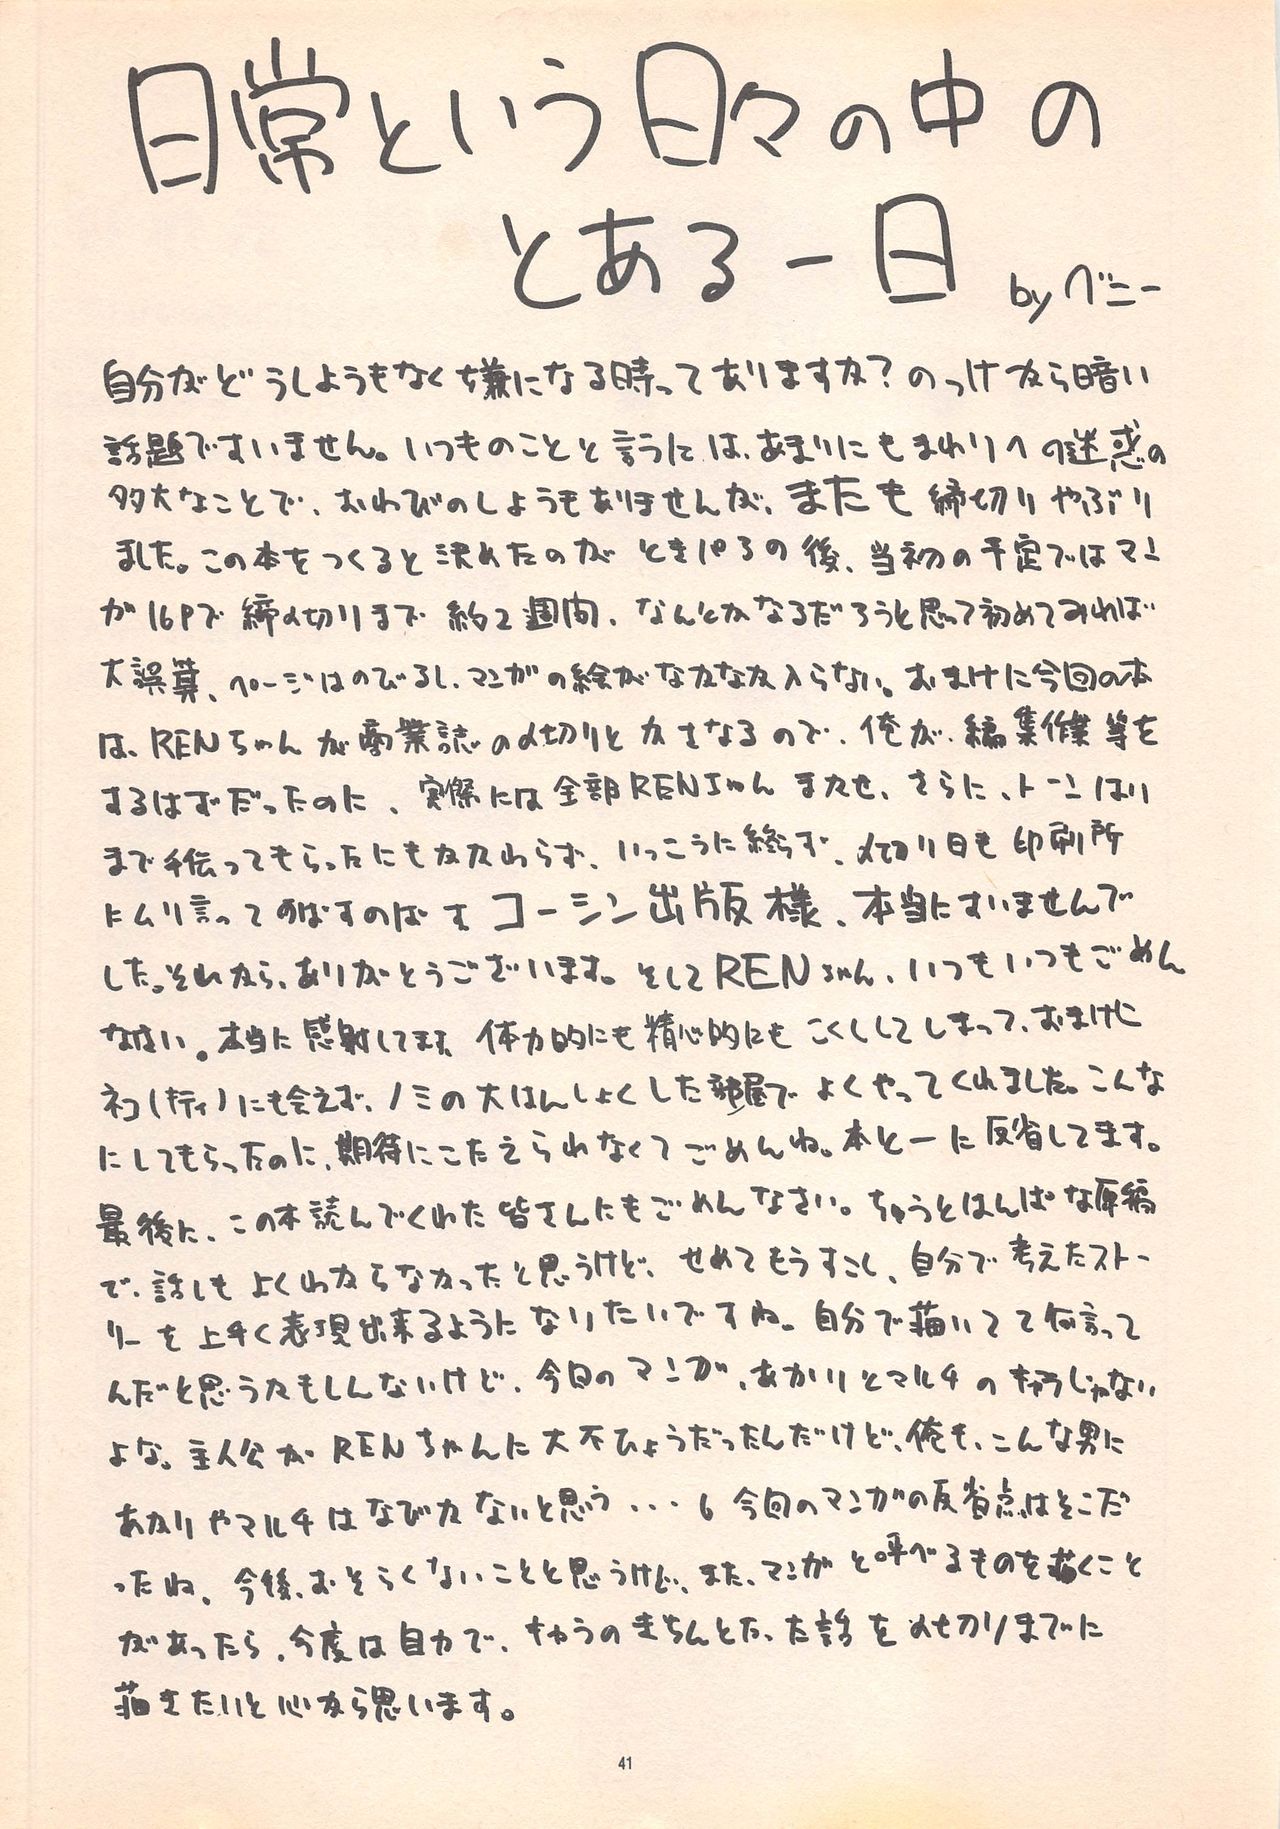 日常という日々の中の
とある一日 byベニー
自分がどうしようもなく嫌になる時ってありますか?のっけから暗い
話題ですいません。いつものことと言うには、あまりにもまわりへの迷惑の
多大なことで、おわびのしようもありませんが、またも締切りやぶり
ました。この本をつくると決めたのがときパろの後、当初の予定ではマン
ガ16Pで締め切りまで約2週間、なんとかなるだろうと思って初めてみれば
大誤算、ページはのびるし、マンガの絵がなかなか入らない。おまけに今回の本
は、RENちゃんが商業誌の〆切りとかさなるので、俺が、編集作業等を
するはずだったのに、実際には全部RENちゃんまかせ、さらに、トーンはり
まで手伝ってもらったにもかかわらず、いっこうに終らず、〆切り日も印刷所
にムリ言ってのばすのばす コーシン出版様、本当にすいませんで
した。それから、ありがとうございます。そしてRENちゃん、いつもいつもごめん
なさい。本当に感射してます 体力的にも精心的にもこくししてしまって、おまけに
ネコ(ナティ)にも会えず、ノミの大はんしょくした部屋でよくやってくれました。こんな
にしてもらったのに、期待にこたえられなくてごめんね。本と一に反省してます。
最後に、この本読んでくれた皆さんにもごめんなさい。ちゅうとはんぱな原稿
で、話しもよくわからなかったと思うけど、せめてもうすこし、自分で考えたスト-
リーを上手く表現出来るようになりたいですね。自分で描いてて何言って
んだと思うかもしんないけど、今回のマンガ、あかりとマルチのキャラじゃない
よな。主人公がRENちゃんに大不ひょうだったんだけど、俺も、こんな男に
あかりやマルチはなびかないと思う・・・。今回のマンガの反省点はそこだ
ったね。今後、おそらくないことと思うけど、また、マンガと呼べるものを描くこと
があったら、今度は自力で、キャラのきちんとたった話を〆切りまでに
描きたいと心から思います。
41